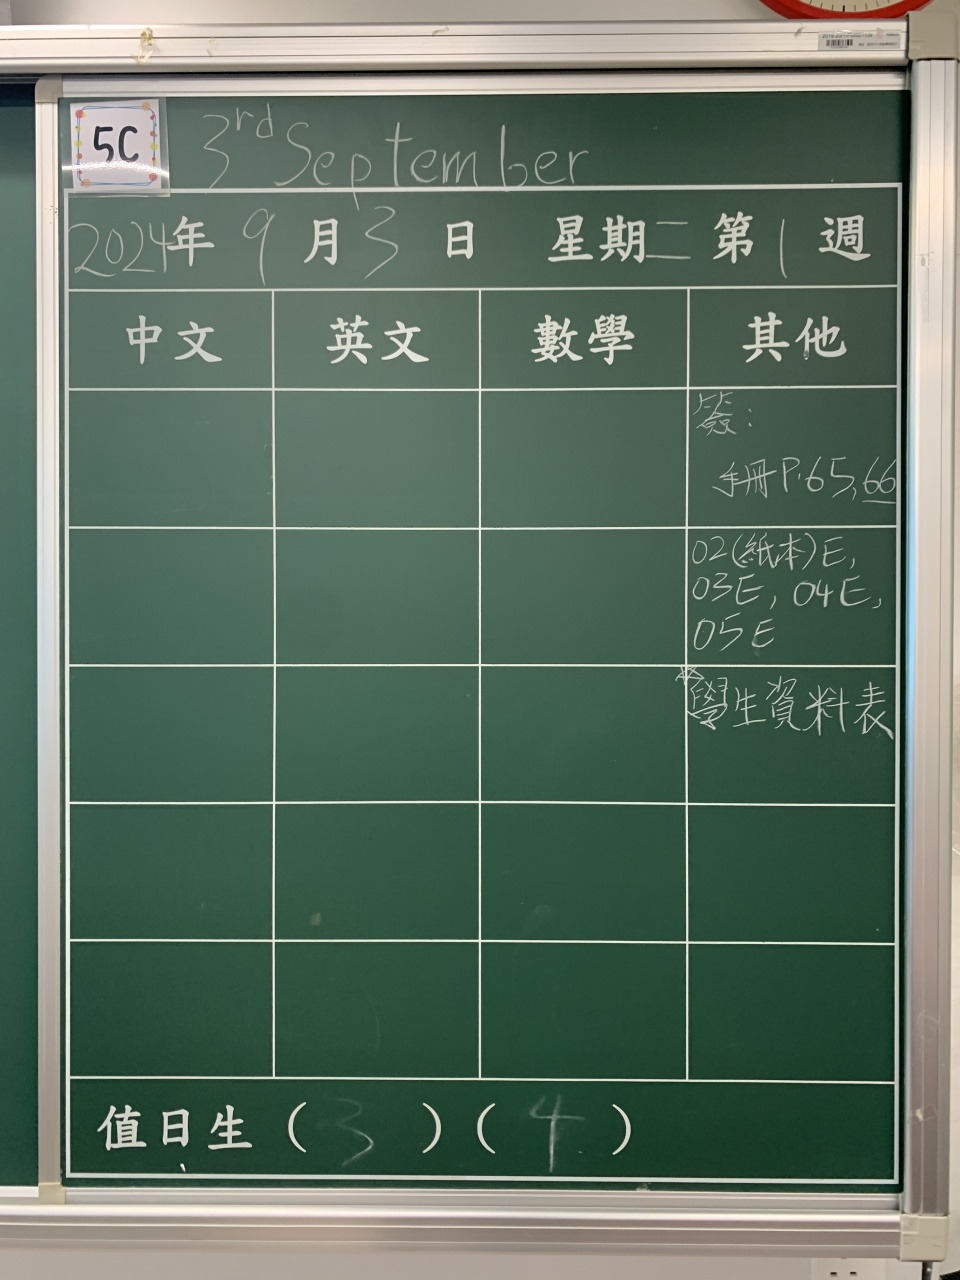 5C
3rd September
2024年 9月3日 星期二 第1週
中文 英文 數學 其他
簽:
手冊P.65,66
02(紙本)E,
03E, 04E,
05E
*學生資料表
值日生 (3) (4)